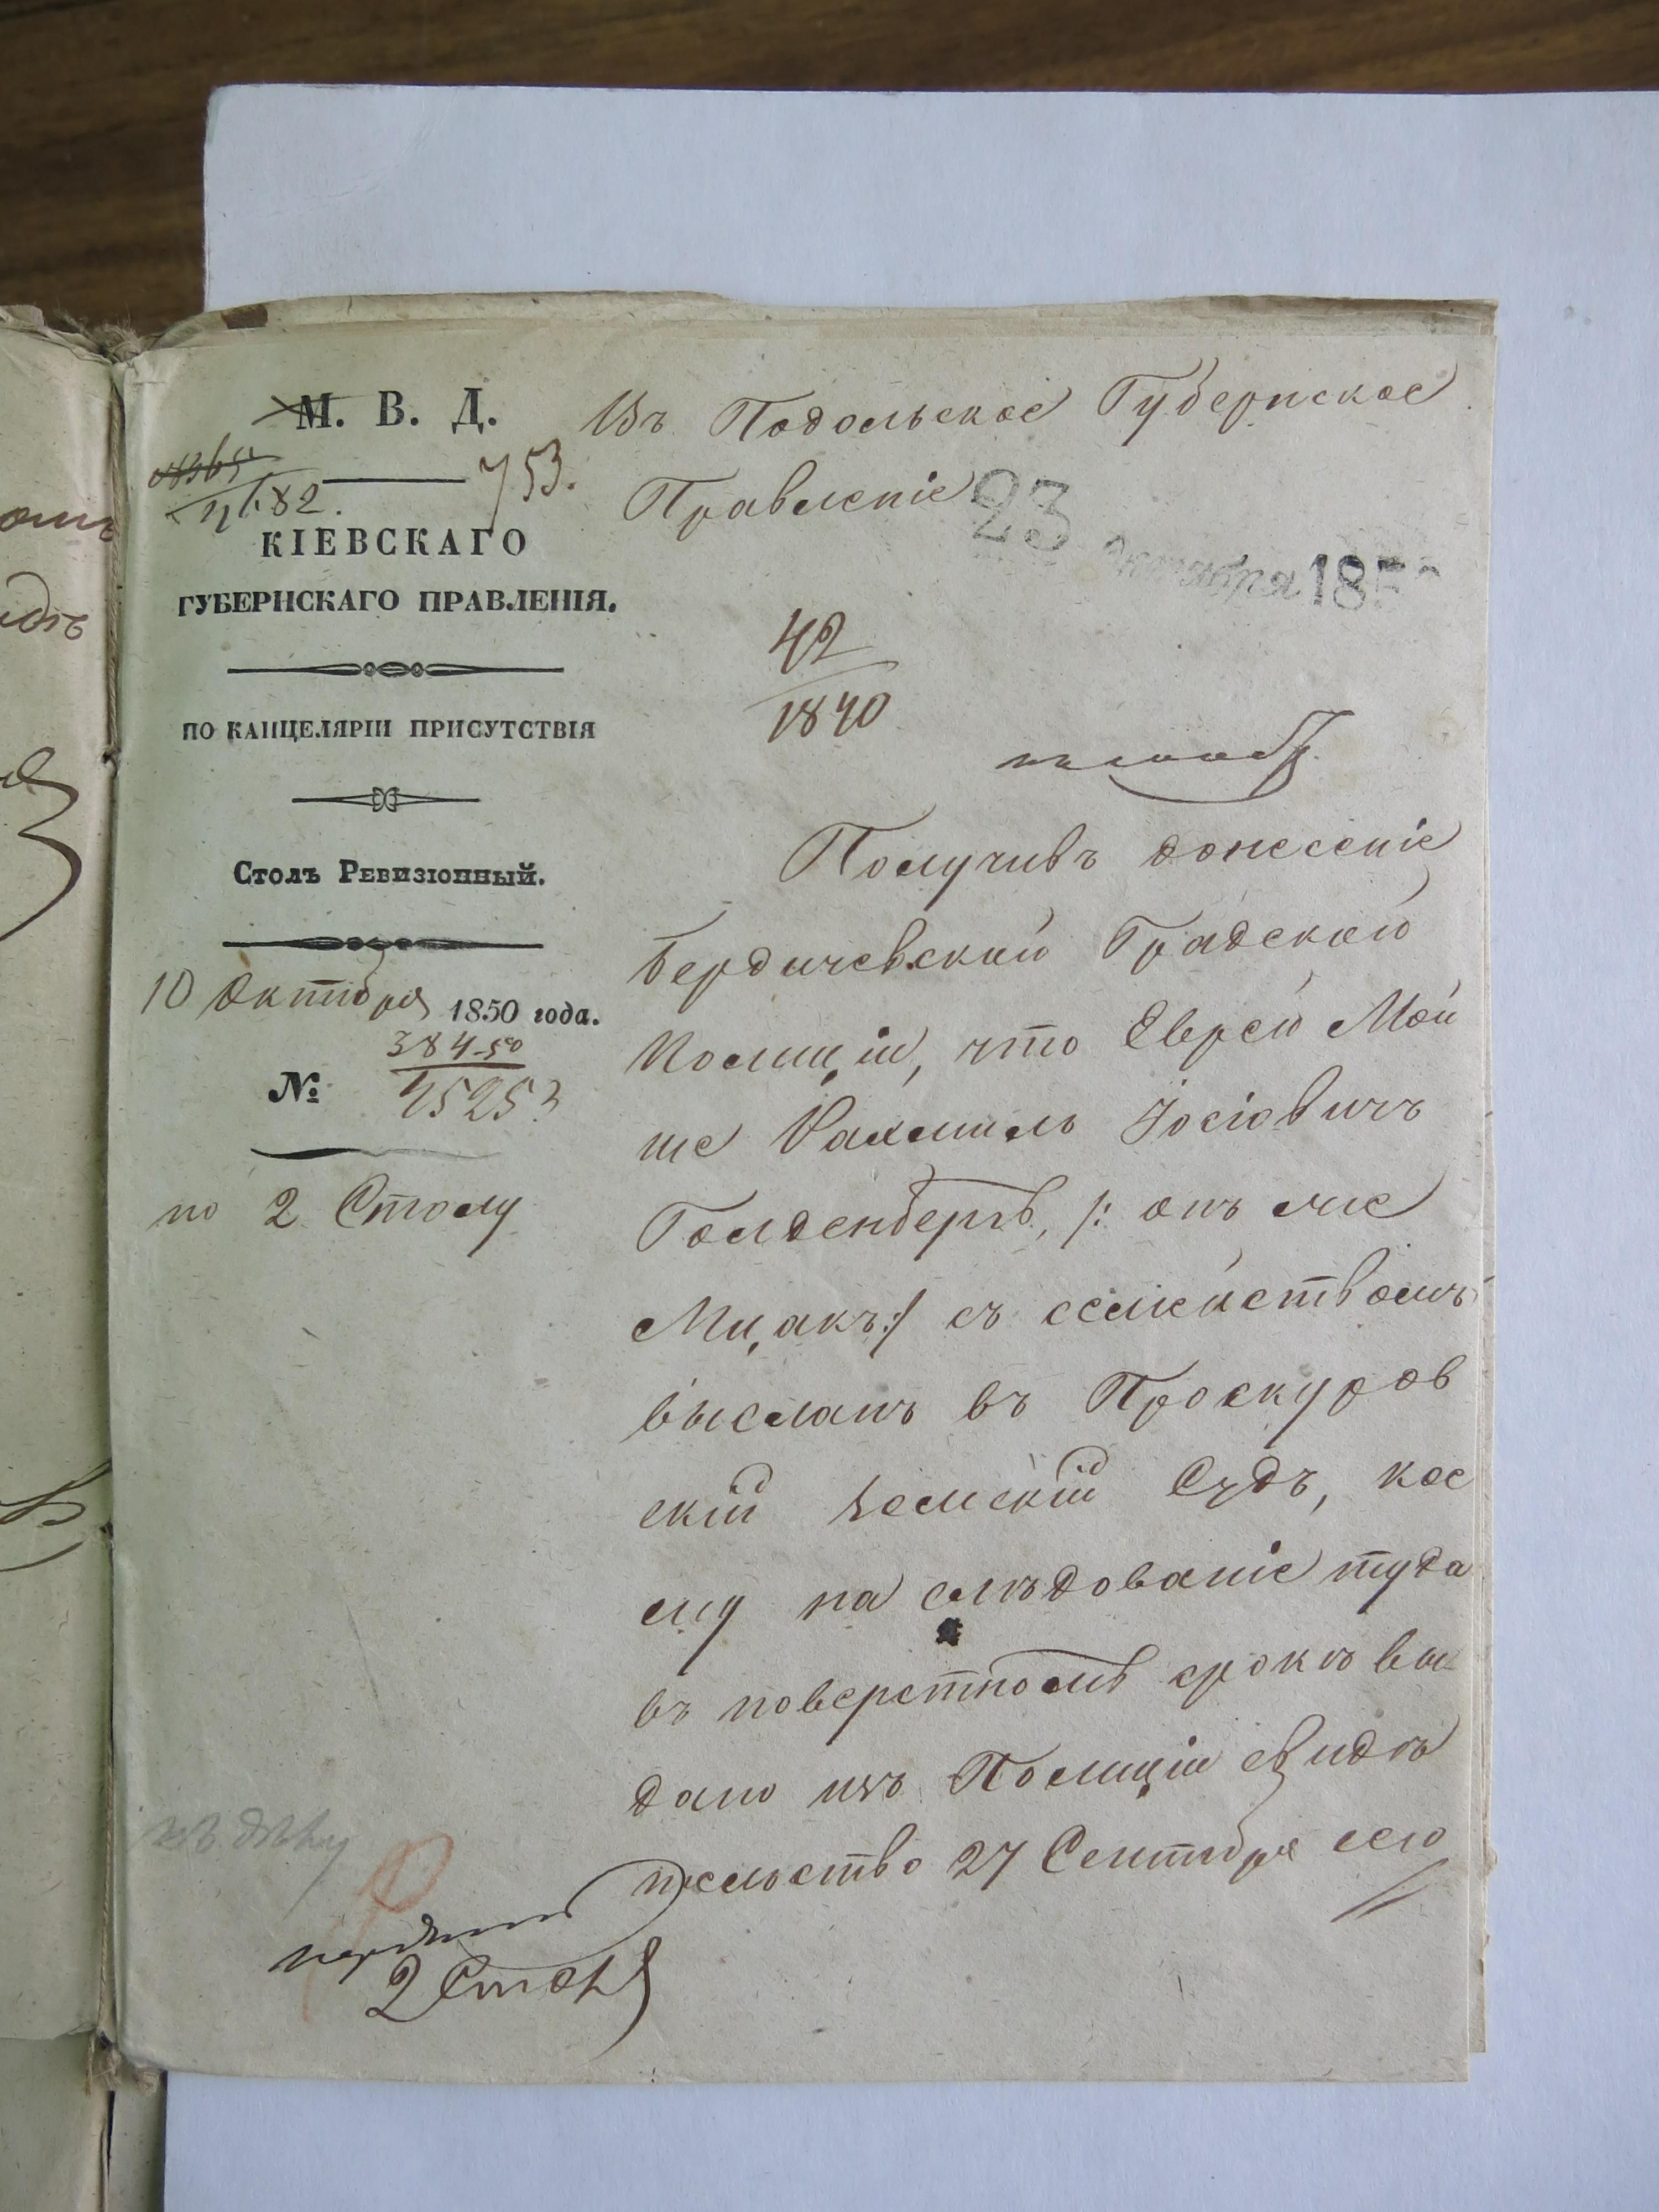 М. В. Д.
753.
КІЕВСКАГО
ГУБЕРНСКАГО ПРАВЛЕНІЯ.
ПО КАНЦЕЛЯРІИ ПРИСУТСТВІЯ
Столъ Ревизіонный.
10 Октября 1850 года.
384-50
№ 45253
по 2 Столу
Въ Подольское Губернское
Правленіе
23 Октября 185
42
1840
Получивъ донесеніе
Бердичевской Градской
Полиціи, что Еврей Мой
ше Рахмиль Іосіовичъ
Голденбергъ, /: онъ же
Мицакъ :/ съ семействомъ
высланъ въ Проскуров
скій Земскій Судъ, кое
му на слѣдованіе туда
въ поверстномъ срокѣ вы
дано изъ Полиціи свидѣ
тельство 27 Сентября сего
къ дѣлу
2 Столъ